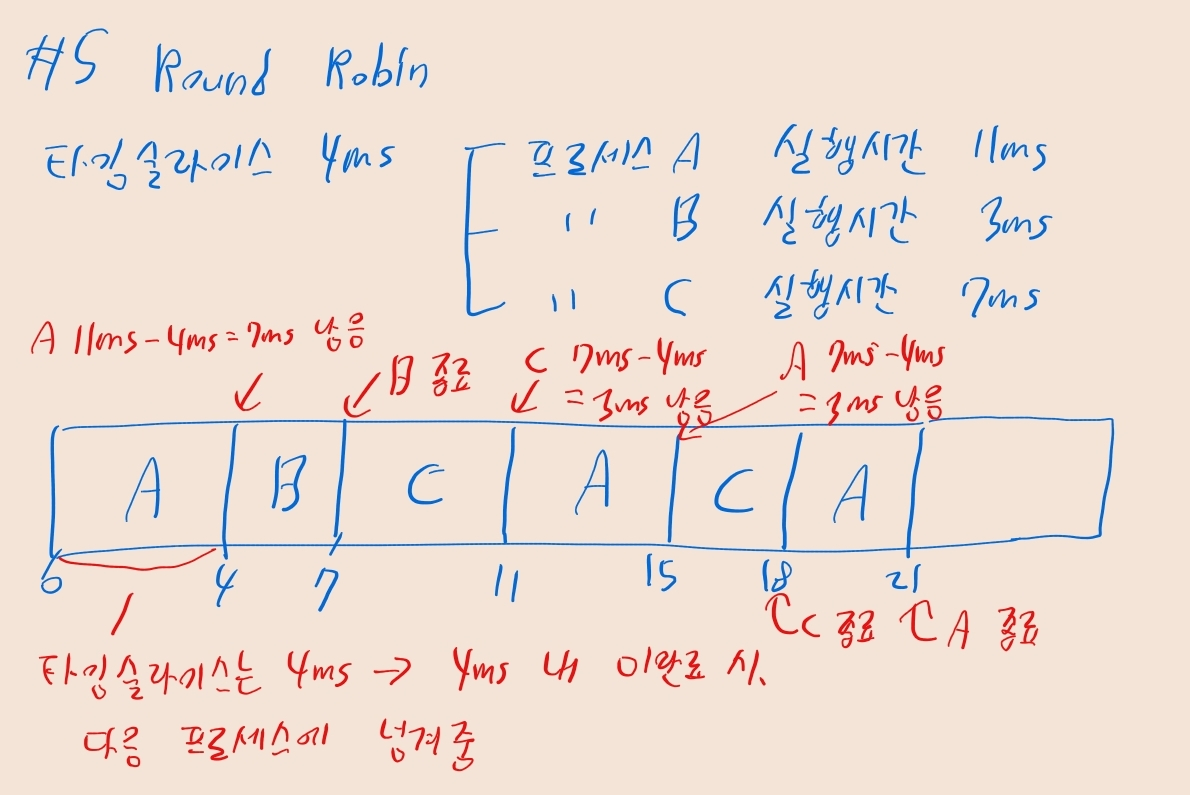 #5 Round Robin
타임슬라이스 4ms
프로세스 A 실행시간 11ms
〃 B 실행시간 3ms
〃 C 실행시간 7ms
A 11ms-4ms=7ms 남음
B 종료
C 7ms-4ms
=3ms 남음
A 7ms-4ms
=3ms 남음
A B C A C A
0 4 7 11 15 18 21
C 종료 A 종료
타임슬라이스는 4ms → 4ms 내 미완료 시,
다음 프로세스에 넘겨줌